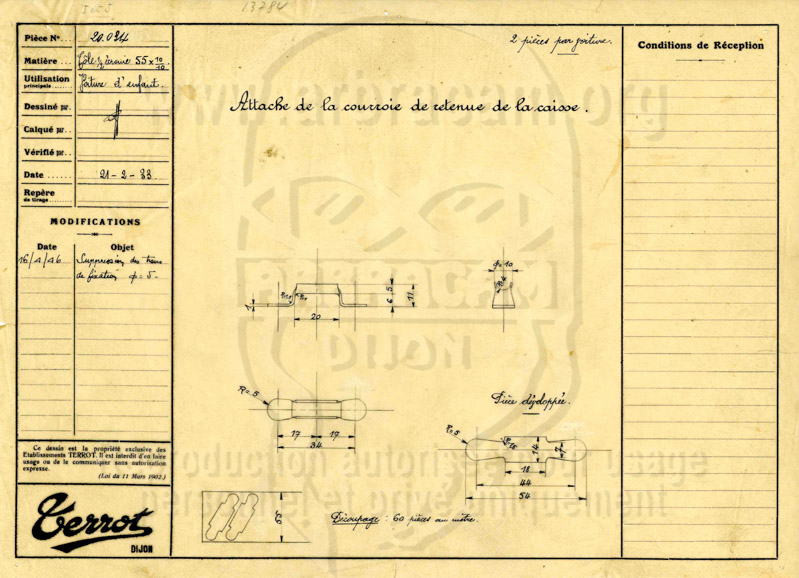 13784
Pièce N°... 20.034
Matière... Tôle 55 x 10/10
Utilisation principale... Voiture d'enfant.
Dessiné pr..
Calqué pr...
Vérifié pr...
Date ...... 21-2-33
Repère de tirage........
MODIFICATIONS
Date Objet
16/1/46 Suppression des trous
de fixation φ = 5-
Ce dessin est la propriété exclusive des
Etablissements TERROT. Il est interdit d'en faire
usage ou de le communiquer sans autorisation
expresse.
(Loi du 11 Mars 1902.)
Terrot
DIJON
2 pièces par voiture.
Attache de la courroie de retenue de la caisse.
1
20
6 5
11
φ = 10
R=5
17 17
34
Pièce développée.
R=5
14
7
18
44
54
Découpage : 60 pièces au mètre.
Conditions de Réception
www.arbracam.org
ARBRACAM
DIJON
Reproduction autorisée pour usage
personnel et privé uniquement